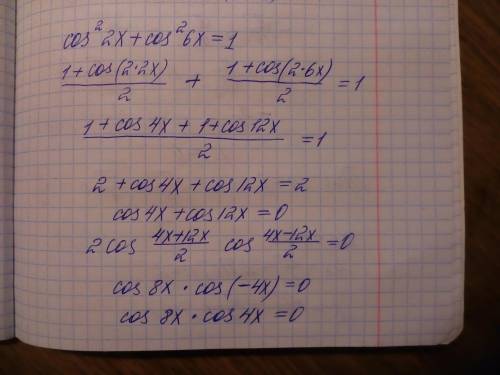 cos²2x + cos²6x = 1
(1 + cos(2·2x))/2 + (1 + cos(2·6x))/2 = 1
(1 + cos4x + 1 + cos12x)/2 = 1
2 + cos4x + cos12x = 2
cos4x + cos12x = 0
2cos (4x+12x)/2 cos (4x-12x)/2 = 0
cos8x · cos(-4x) = 0
cos8x · cos4x = 0